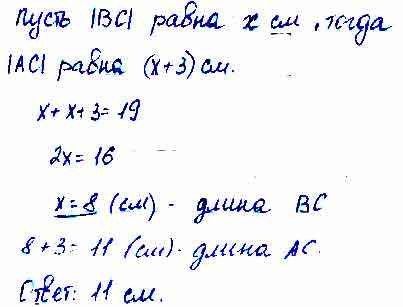 Пусть |BC| равна x см, тогда
|AC| равна (x+3) см.
x+x+3=19
2x=16
x=8 (см) - длина BC
8+3=11 (см) - длина AC.
Ответ: 11 см.